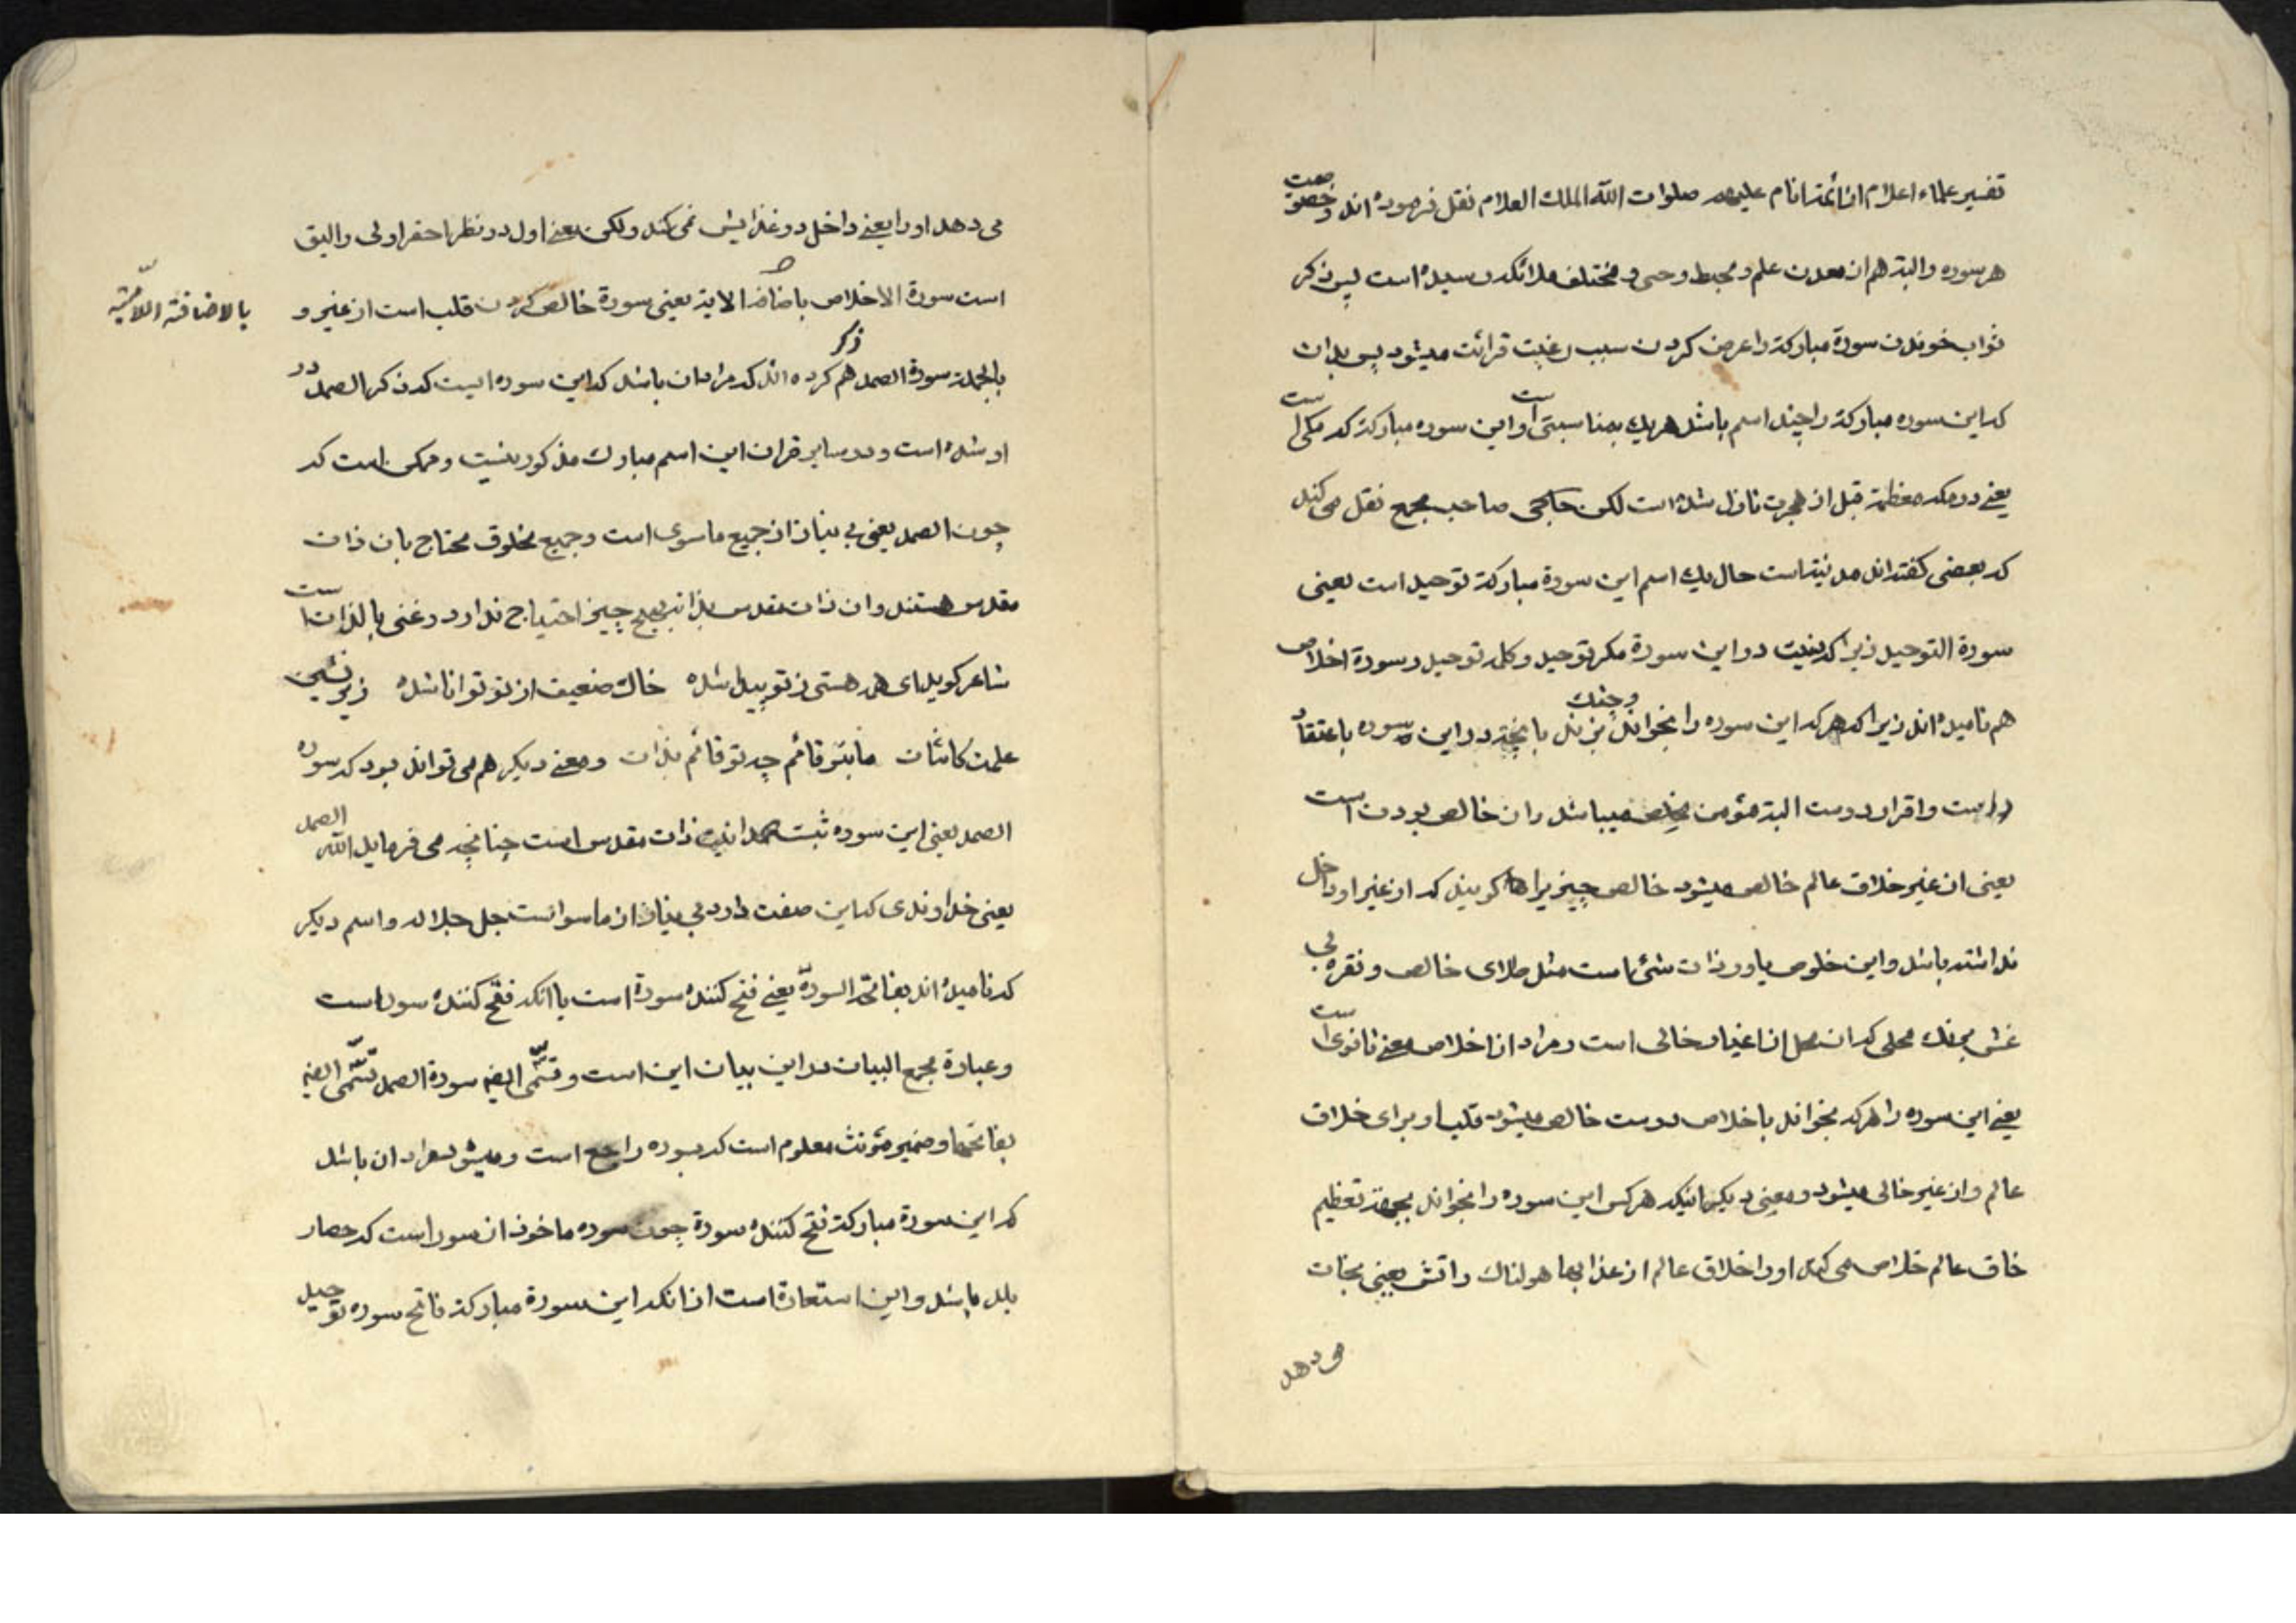 تفسیر علماء اعلام از ائمه انام علیهم صلوات الله الملك العلام نقل فرموده اند وخصوصت
هر سوره والبته هم از معدن علم ومحبط وحی ومختلف ملائکه رسیده است پس ذکر
ثواب خوندن سورة مبارکة را عرض کردن سبب رغبت قرائت میشود پس بدان
که این سوره مبارکة را چند اسم باشد هریك بمناسبتی است واین سوره مبارکة که مکی است
یعنی در مکه معظمة قبل از هجرت نازل شده است لکن صاحب مجمع نقل می کند
که بعضی کفته اند مدنیة است حال یك اسم این سورة مبارکة توحید است یعنی
سورة التوحید زیرا که نیست در این سورة مکر توحید وکلمه توحید وسورة اخلاص
هم نامیده اند زیرا که هرکه این سوره را بخواند وچنك بزند بانچه در این سوره باعتقاد
راست واقرار درست البته مؤمن مخلص میباشد وان خالص بودن است
یعنی از غیر خلاق عالم خالص میشود خالص چیزیرا کویند که از غیر او داخل
نداشته باشد واین خلوص یا در ذات شئ است مثل طلای خالص ونقره بی
غش یا محلی که ان محل از اغیار خالی است ومراد از اخلاص معنی ثانوی است
یعنی این سوره را هرکه بخواند با خلاص درست خالص میشود قلب او برای خلاق
عالم واز غیر خالی میشود ومعنی دیکر انیکه هرکس این سوره را بخواند بجهة تعظیم
خلاق عالم خلاص می کند او را خلاق عالم از عذابها هولناك واتش یعنی نجات
می دهد
می دهد او را یعنی داخل در عذابش نمی کند ولکن معنی اول در نظر احقر اولی والیق
است سورة الاخلاص باضافه الامیه یعنی سورة خالص کردن قلب است از غیر و
بالاضافة اللامیّة
بالجملة سورة الصمد هم ذکر کرده اند که مراد ان باشد که این سوره ایست که ذکر الصمد در
او شده است ودر سایر قران این اسم مبارك مذکور نیست وممکن است که
چون الصمد یعنی بی نیاز از جمیع ماسوی است وجمیع مخلوق محتاج بان ذات
مقدس هستند وان ذات مقدس بذاته بهیچ چیز احتیاج ندارد وغنی بالذات است
شاعر کوید ای همه هستی ز تو پیدا شده خاك ضعیف از تو توانا شده زیر نشین
علمت کائنات ما بتو قائم چه تو قائم بذات ومعنی دیکر هم می تواند بود که سوره
الصمد یعنی این سوره مثبت صمدانیت ذات مقدس است چنانچه می فرماید الله الصمد
یعنی خداوندی که این صفت دارد بی نیاز از ماسوا است جل جلاله واسم دیکر
که نامیده اند بفاتحة السورة یعنی فتح کننده سورة است یا انکه فتح کننده سور است
وعبارة مجمع البیان در این بیان این است وتسّمی ایضا سورة الصمد وتسّمی ایضا
بفاتحتها وضمیر مؤنث معلوم است که بسوره راجع است ومیشود مراد ان باشد
که این سورة مبارکة فتح کننده سورة چون سوره ماخوذ از سور است که حصار
بلد باشد واین استعارة است از انکه این سورة مبارکة فاتح سوره توحید